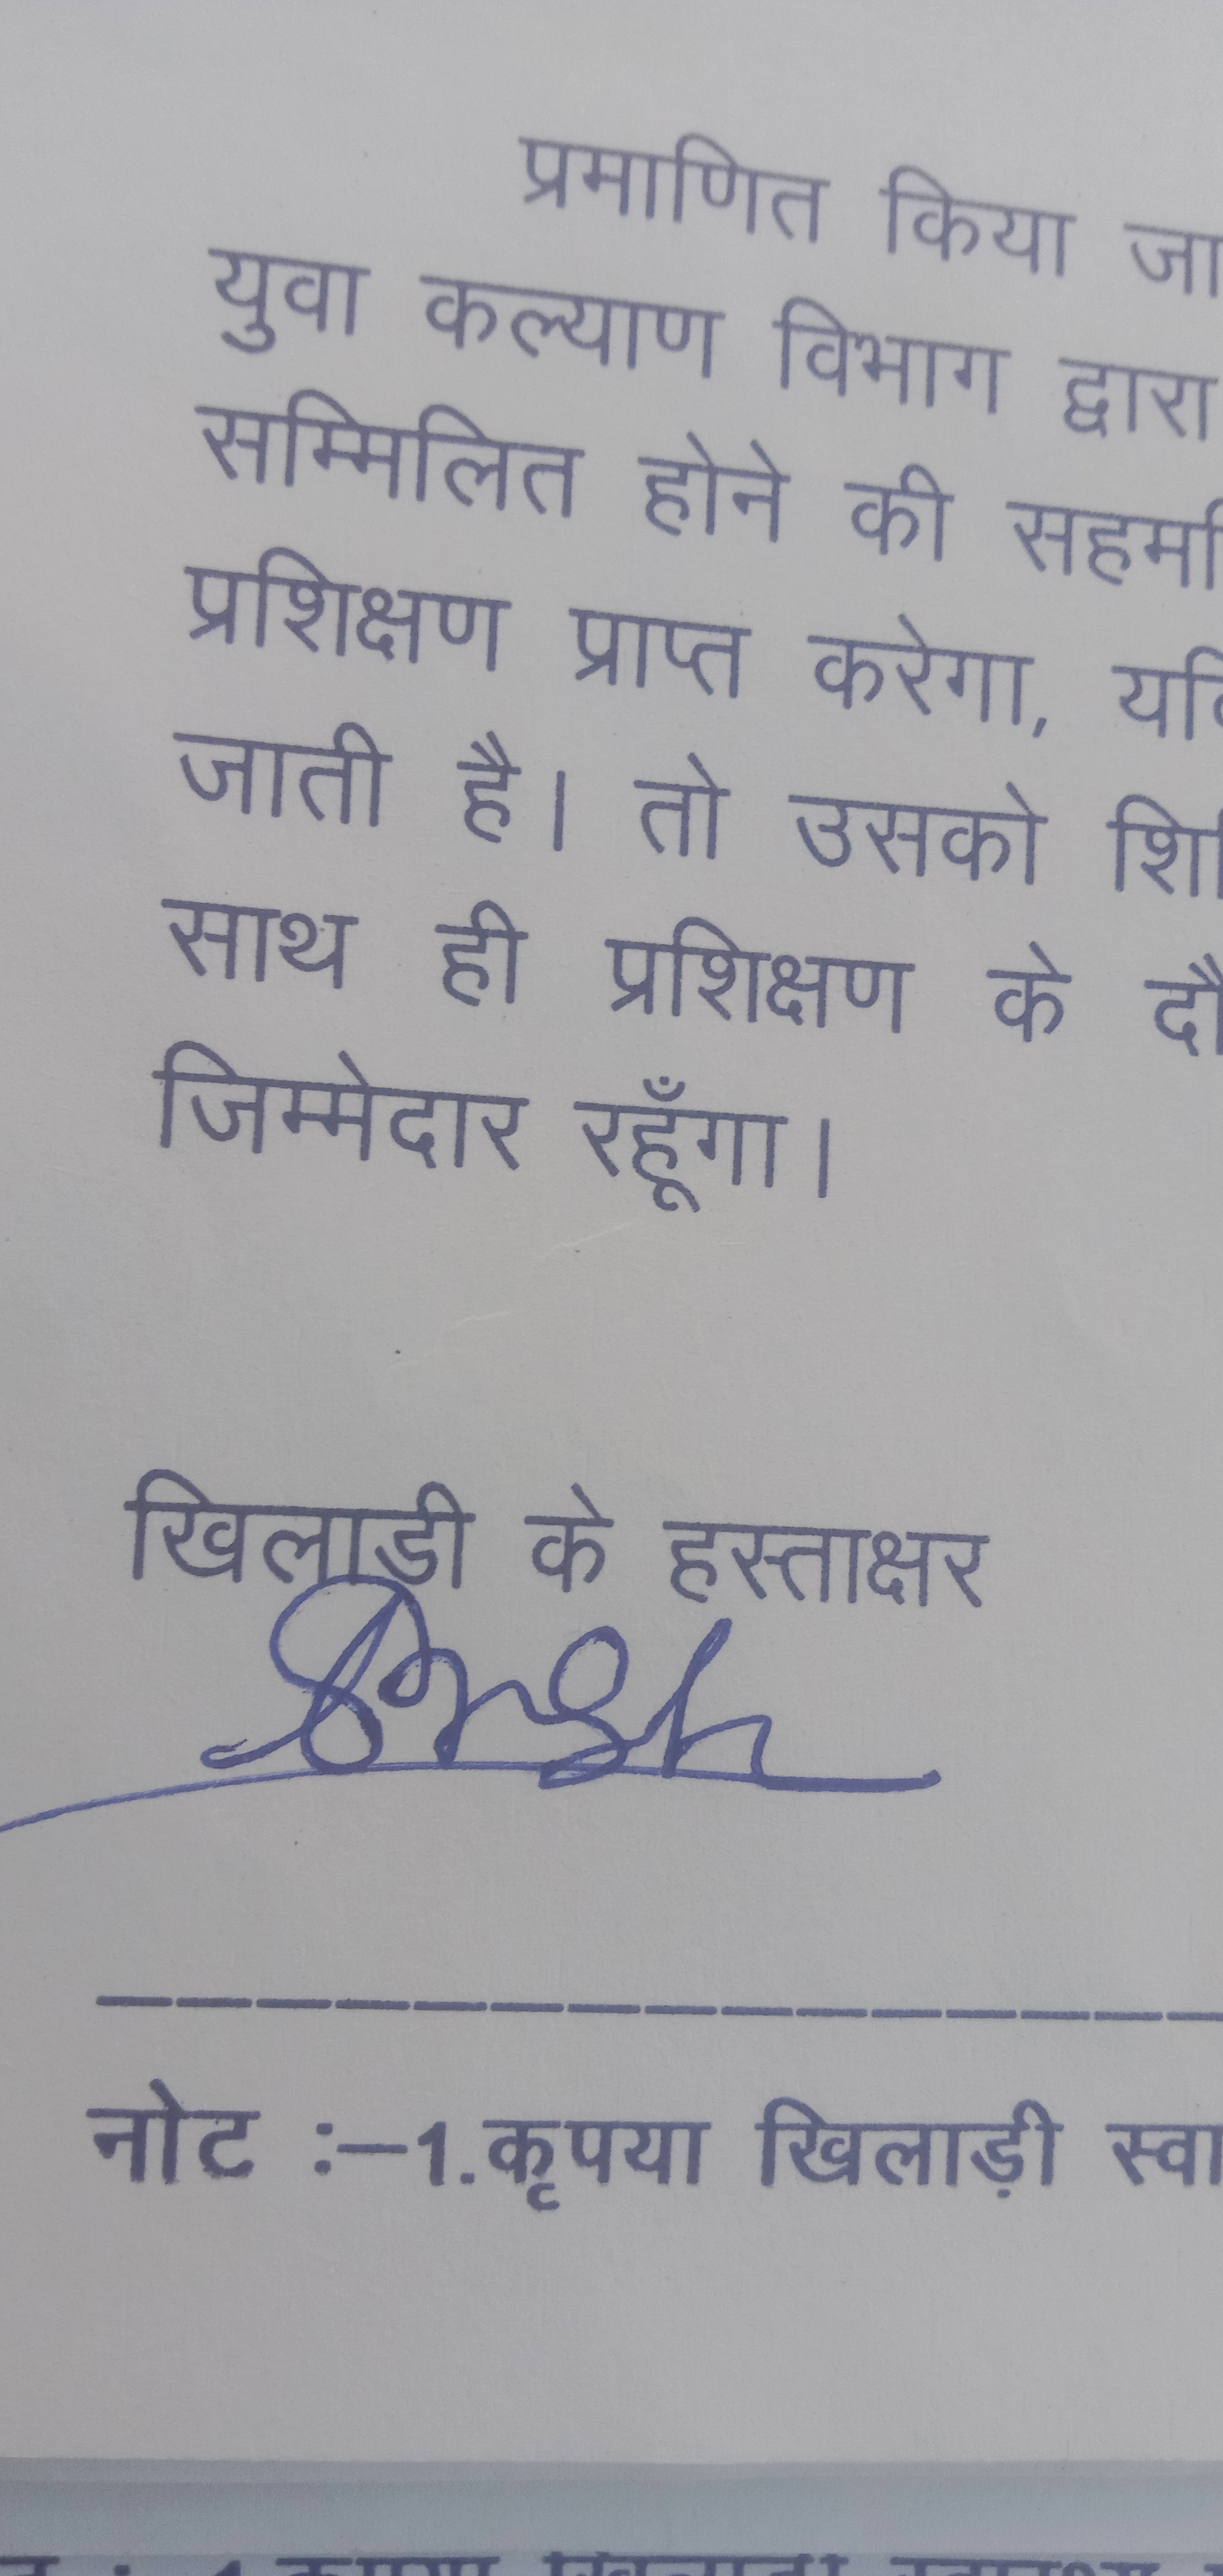 प्रमाणित किया जा
युवा कल्याण विभाग द्वारा
सम्मिलित होने की
प्रशिक्षण प्राप्त करेगा,
जाती है। तो उसको
साथ ही प्रशिक्षण के
जिम्मेदार रहूँगा।
खिलाडी के हस्ताक्षर
नोट :–1.कृपया खिलाड़ी स्वा